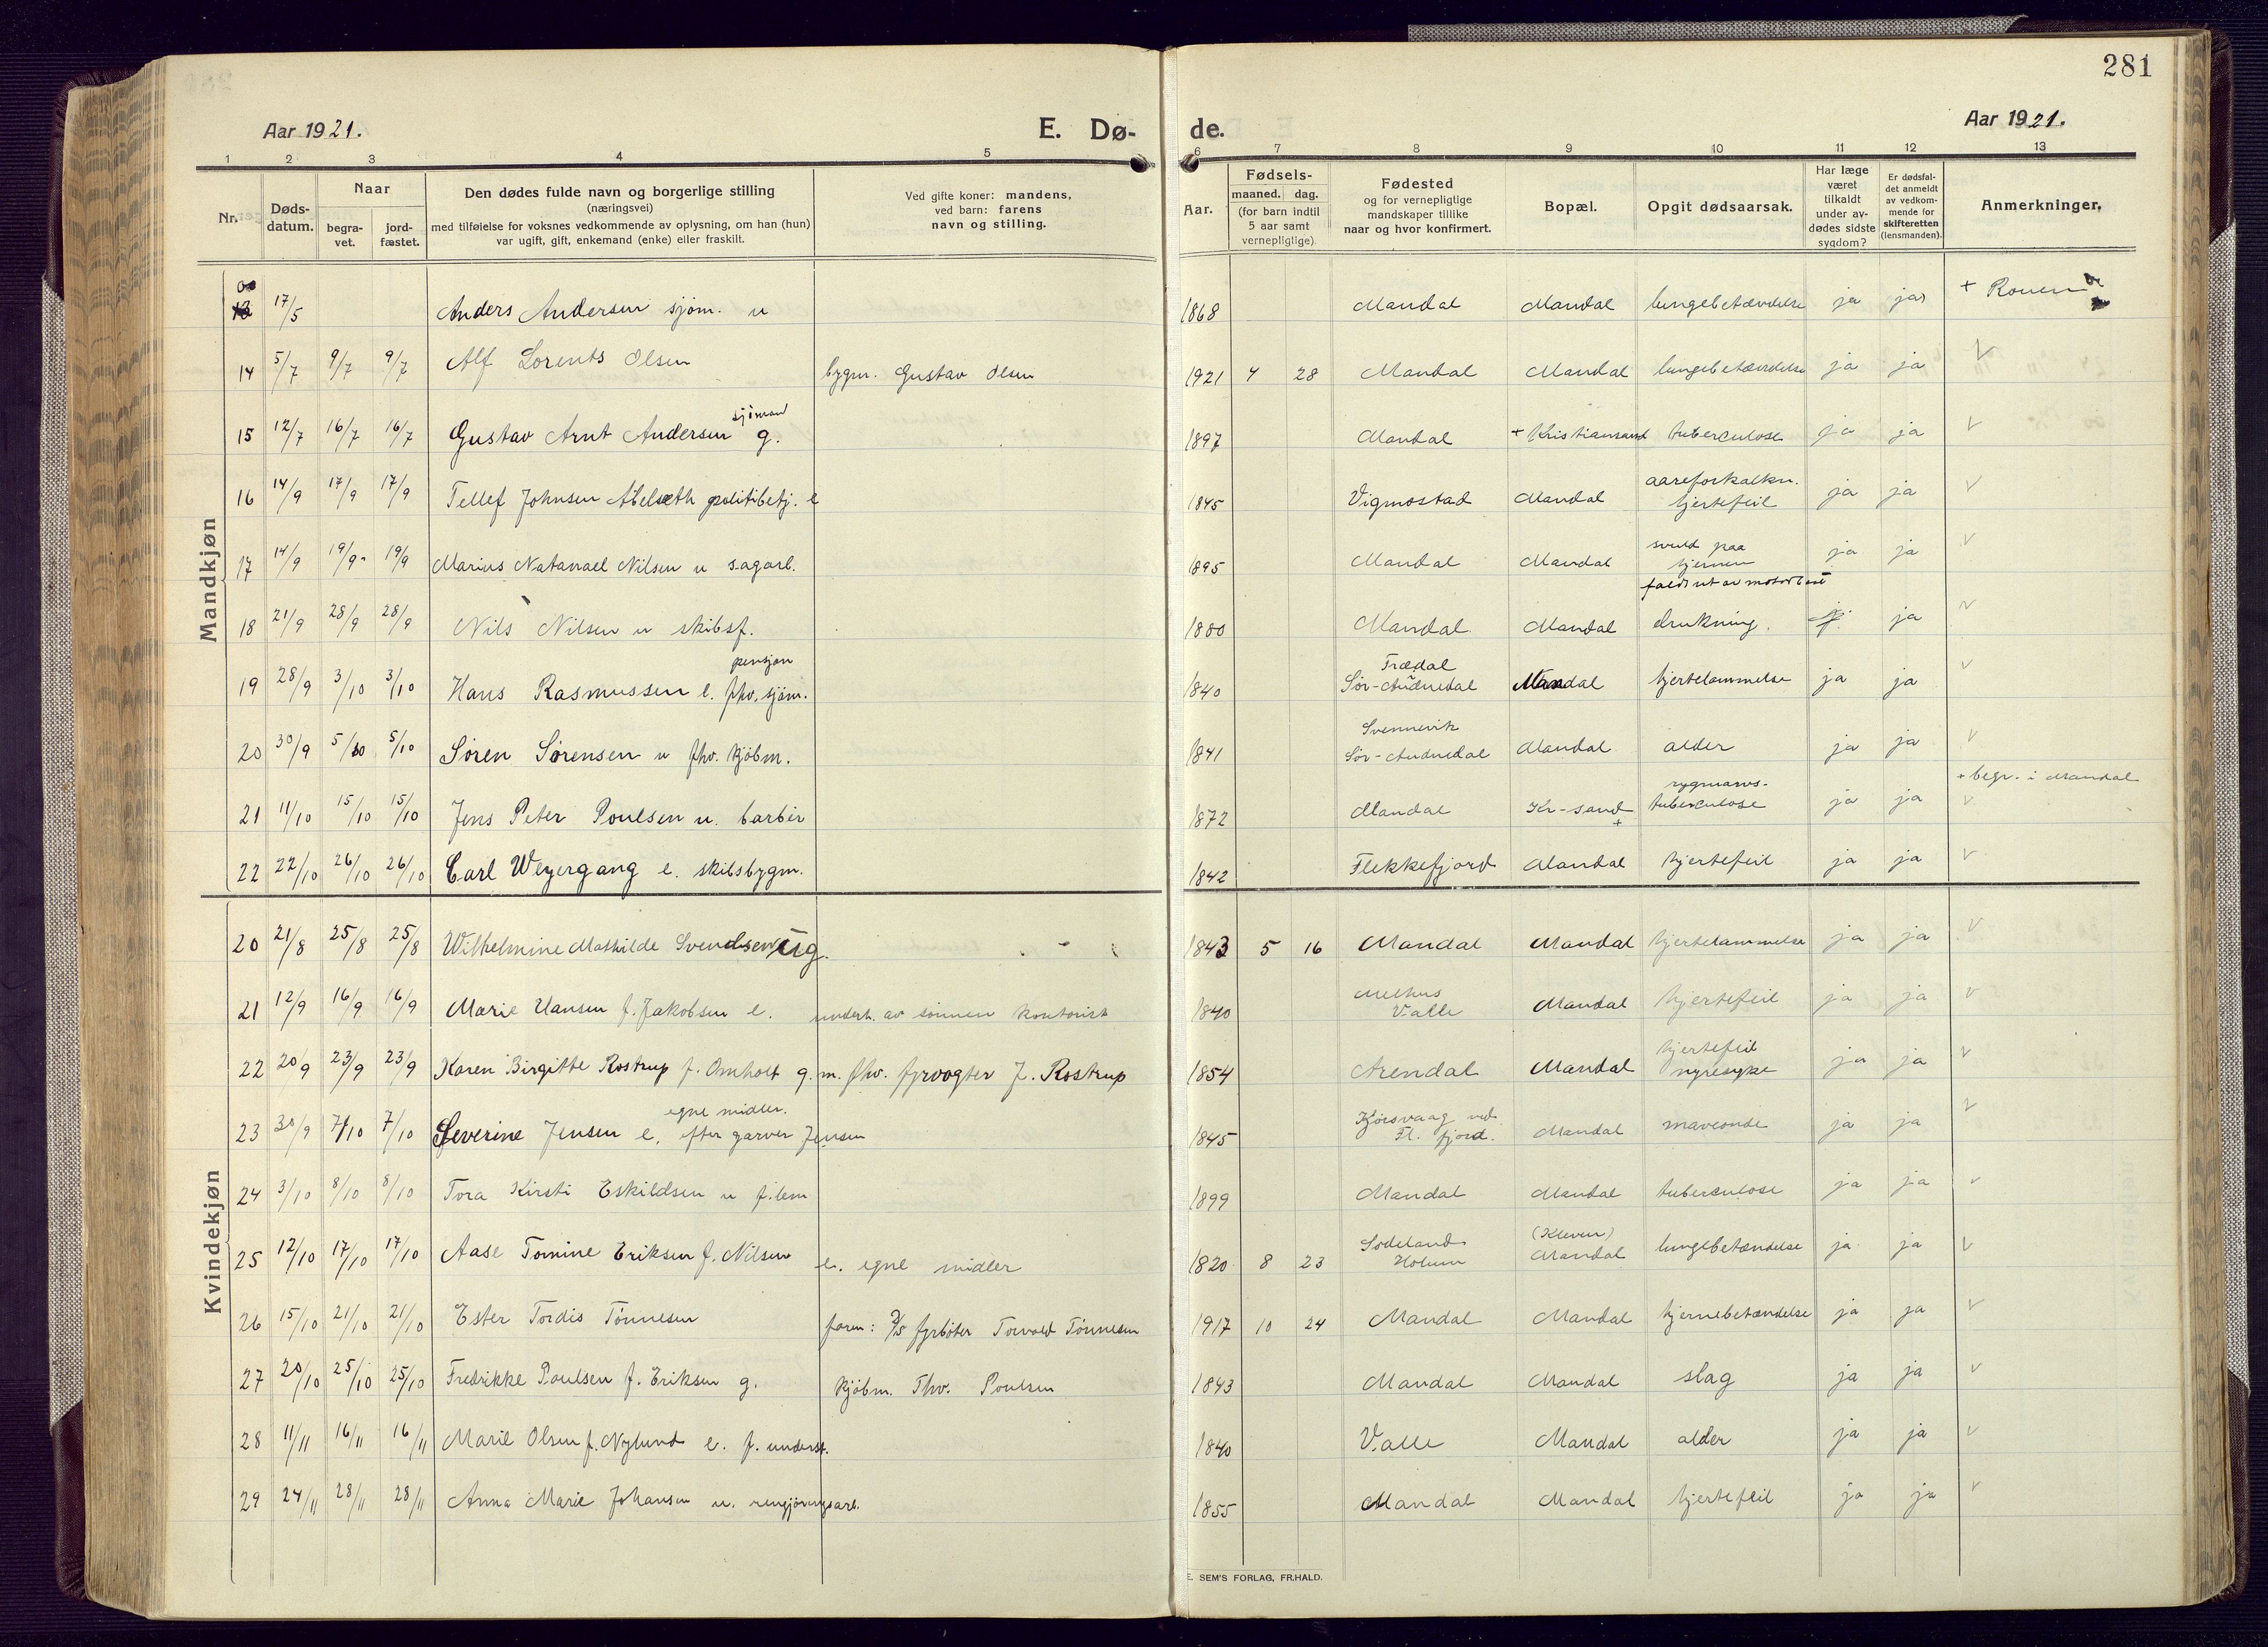 281
Aar 1921.
E. Dø-
de.
Aar 1921.
1 2 3 4 5 6 7 8 9 10 11 12 13
Nr.
Døds-
datum.
Naar
begra-
vet.
jord-
fæstet.
Den dødes fulde navn og borgerlige stilling
(næringsvei)
med tilføielse for voksnes vedkommende av oplysning, om han (hun)
var ugift, gift, enkemand (enke) eller fraskilt.
Ved gifte koner: mandens,
ved barn: farens
navn og stilling.
Aar.
Fødsels-
maaned. dag.
(for barn indtil
5 aar samt
vernepliglige)
Fødested
og for vernepligtige
mandskaper tillike
naar og hvor konfirmert.
Bopæl.
Opgit dødsaarsak.
Har læge
været
tilkaldt
under av-
dødes sidste
sygdom?
Er dødsfal-
det anmeldt
av vedkom-
mende for
skifteretten
(lensmanden).
Anmerkninger.
Mandkjøn
17/5 Anders Andersen sjøm. u 1868 Mandal Mandal lungebetændelse ja ja + Rouen
14 5/7 9/7 9/7 Alf Lorents Olsen bygm. Gustav Olsen 1921 4 28 Mandal Mandal lungebetændelse ja ja
sjømand
15 12/7 16/7 16/7 Gustav Arnt Andersen g. 1897 Mandal + Kristiansand tuberculose ja ja
aareforkalkn.
16 14/9 17/9 17/9 Tellef Johnsen Abelseth politibetj. e 1845 Vigmostad Mandal hjertefeil ja ja
svuld paa
17 14/9 19/9 19/9 Marius Natanael Nilsen u sagarb. 1895 Mandal Mandal hjernen ja ja
faldt ut av motorbaat
18 21/9 28/9 28/9 Nils Nilsen u skibsf. 1880 Mandal Mandal drukning. ja
pensjon Trædal
19 28/9 3/10 3/10 Hans Rasmussen e. fhv. sjøm. 1840 Sør-Audnedal Mandal hjertelammelse ja ja
Svennevik
20 30/9 5/10 5/10 Søren Sørensen u fhv. kjøbm. 1841 Sør-Audnedal Mandal alder ja ja
rygmarvs- + begr. i Mandal
21 11/10 15/10 15/10 Jens Peter Poulsen u. barber 1872 Mandal Kr-sand + tuberculose ja ja
22 22/10 26/10 26/10 Carl Weyergang e. skibsbygm. 1842 Flekkefjord Mandal hjertefeil ja ja
Kvindekjøn
20 21/8 25/8 25/8 Wilhelmine Mathilde Svendsen ug. 1843 5 16 Mandal Mandal hjertelammelse ja ja
21 12/9 16/9 16/9 Marie Hansen f. Jakobsen e. underh. av sønnen kontorist 1840 Valle Mandal hjertefeil ja ja
hjertefeil
22 20/9 23/9 23/9 Karen Birgitte Rostrup f. Omholt g. m. fhv. fyrvogter J. Rostrup 1854 Arendal Mandal nyresyke ja ja
egne midler.
23 30/9 7/10 7/10 Severine Jensen e. efter garver Jensen 1845 ved Fl. fjord. Mandal maveonde ja ja
24 3/10 8/10 8/10 Tora Kirsti Eskildsen u f. lem 1899 Mandal Mandal tuberculose ja ja
Sødeland (Kleven)
25 12/10 17/10 17/10 Aase Tomine Eriksen f. Nilsen e. egne midler 1820 8 23 Holum Mandal lungebetændelse ja ja
26 15/10 21/10 21/10 Ester Tordis Tønnesen faren: D/S fyrbøter Torvald Tønnesen 1917 10 24 Mandal Mandal hjernebetændelse ja ja
27 20/10 25/10 25/10 Fredrikke Poulsen f. Eriksen g. kjøbm. Thv. Poulsen 1843 Mandal Mandal slag ja ja
28 11/11 16/11 16/11 Marie Olsen f. Nylund e. f. underst. 1840 Valle Mandal alder ja ja
29 24/11 28/11 28/11 Anna Marie Johansen u. rengjøringsarb. 1855 Mandal Mandal hjertefeil ja ja
E. SEM'S FORLAG, FR.HALD.